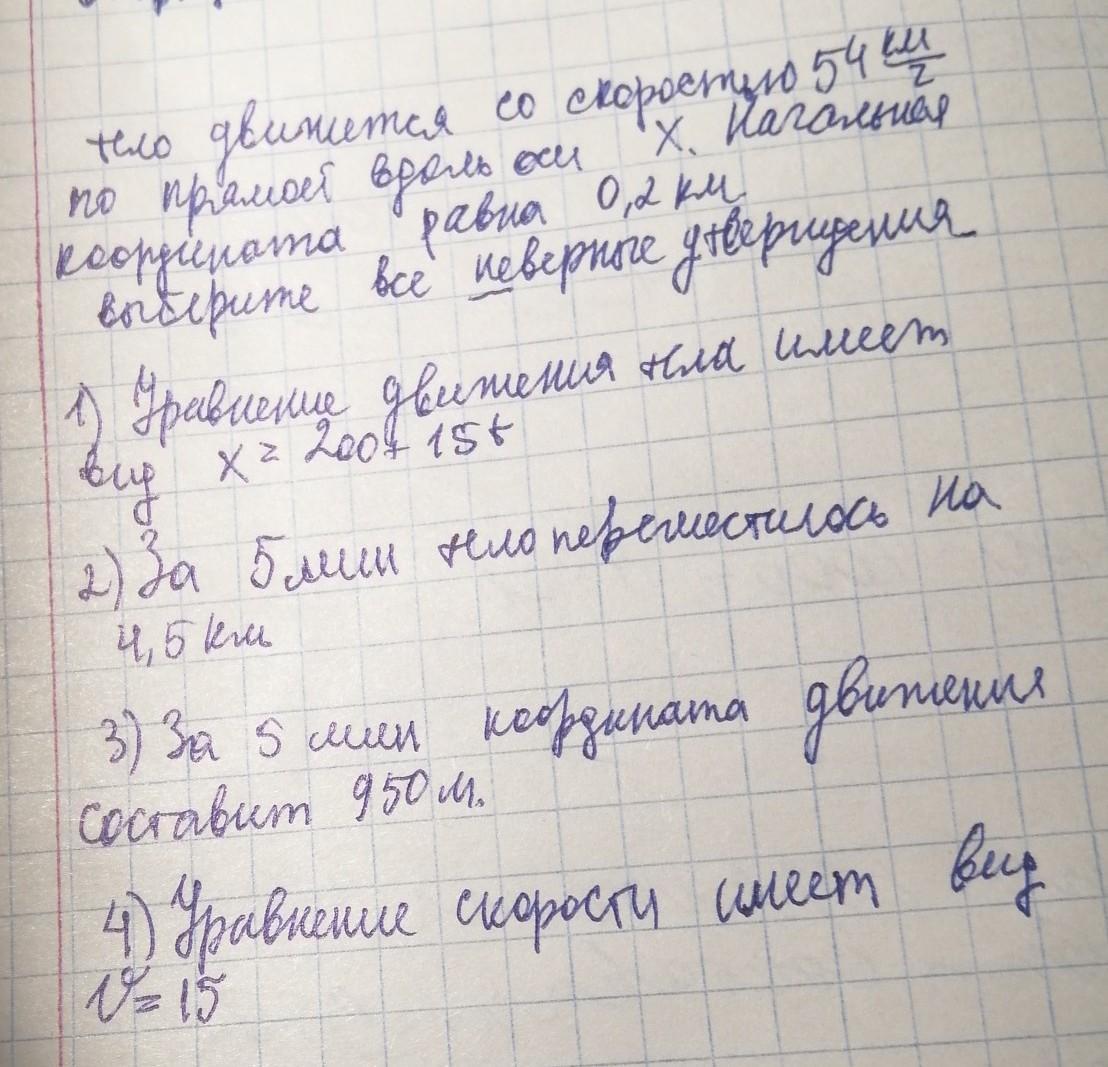 тело движется со скоростью 54 км/ч
по прямой вдоль оси X. Начальная
координата равна 0,2 км
выберите все неверные утверждения
1) Уравнение движения тела имеет
вид x = 200 + 15t
2) За 5 мин тело переместилось на
4,5 км
3) За 5 мин координата движения
составит 950 м.
4) Уравнение скорости имеет вид
V = 15